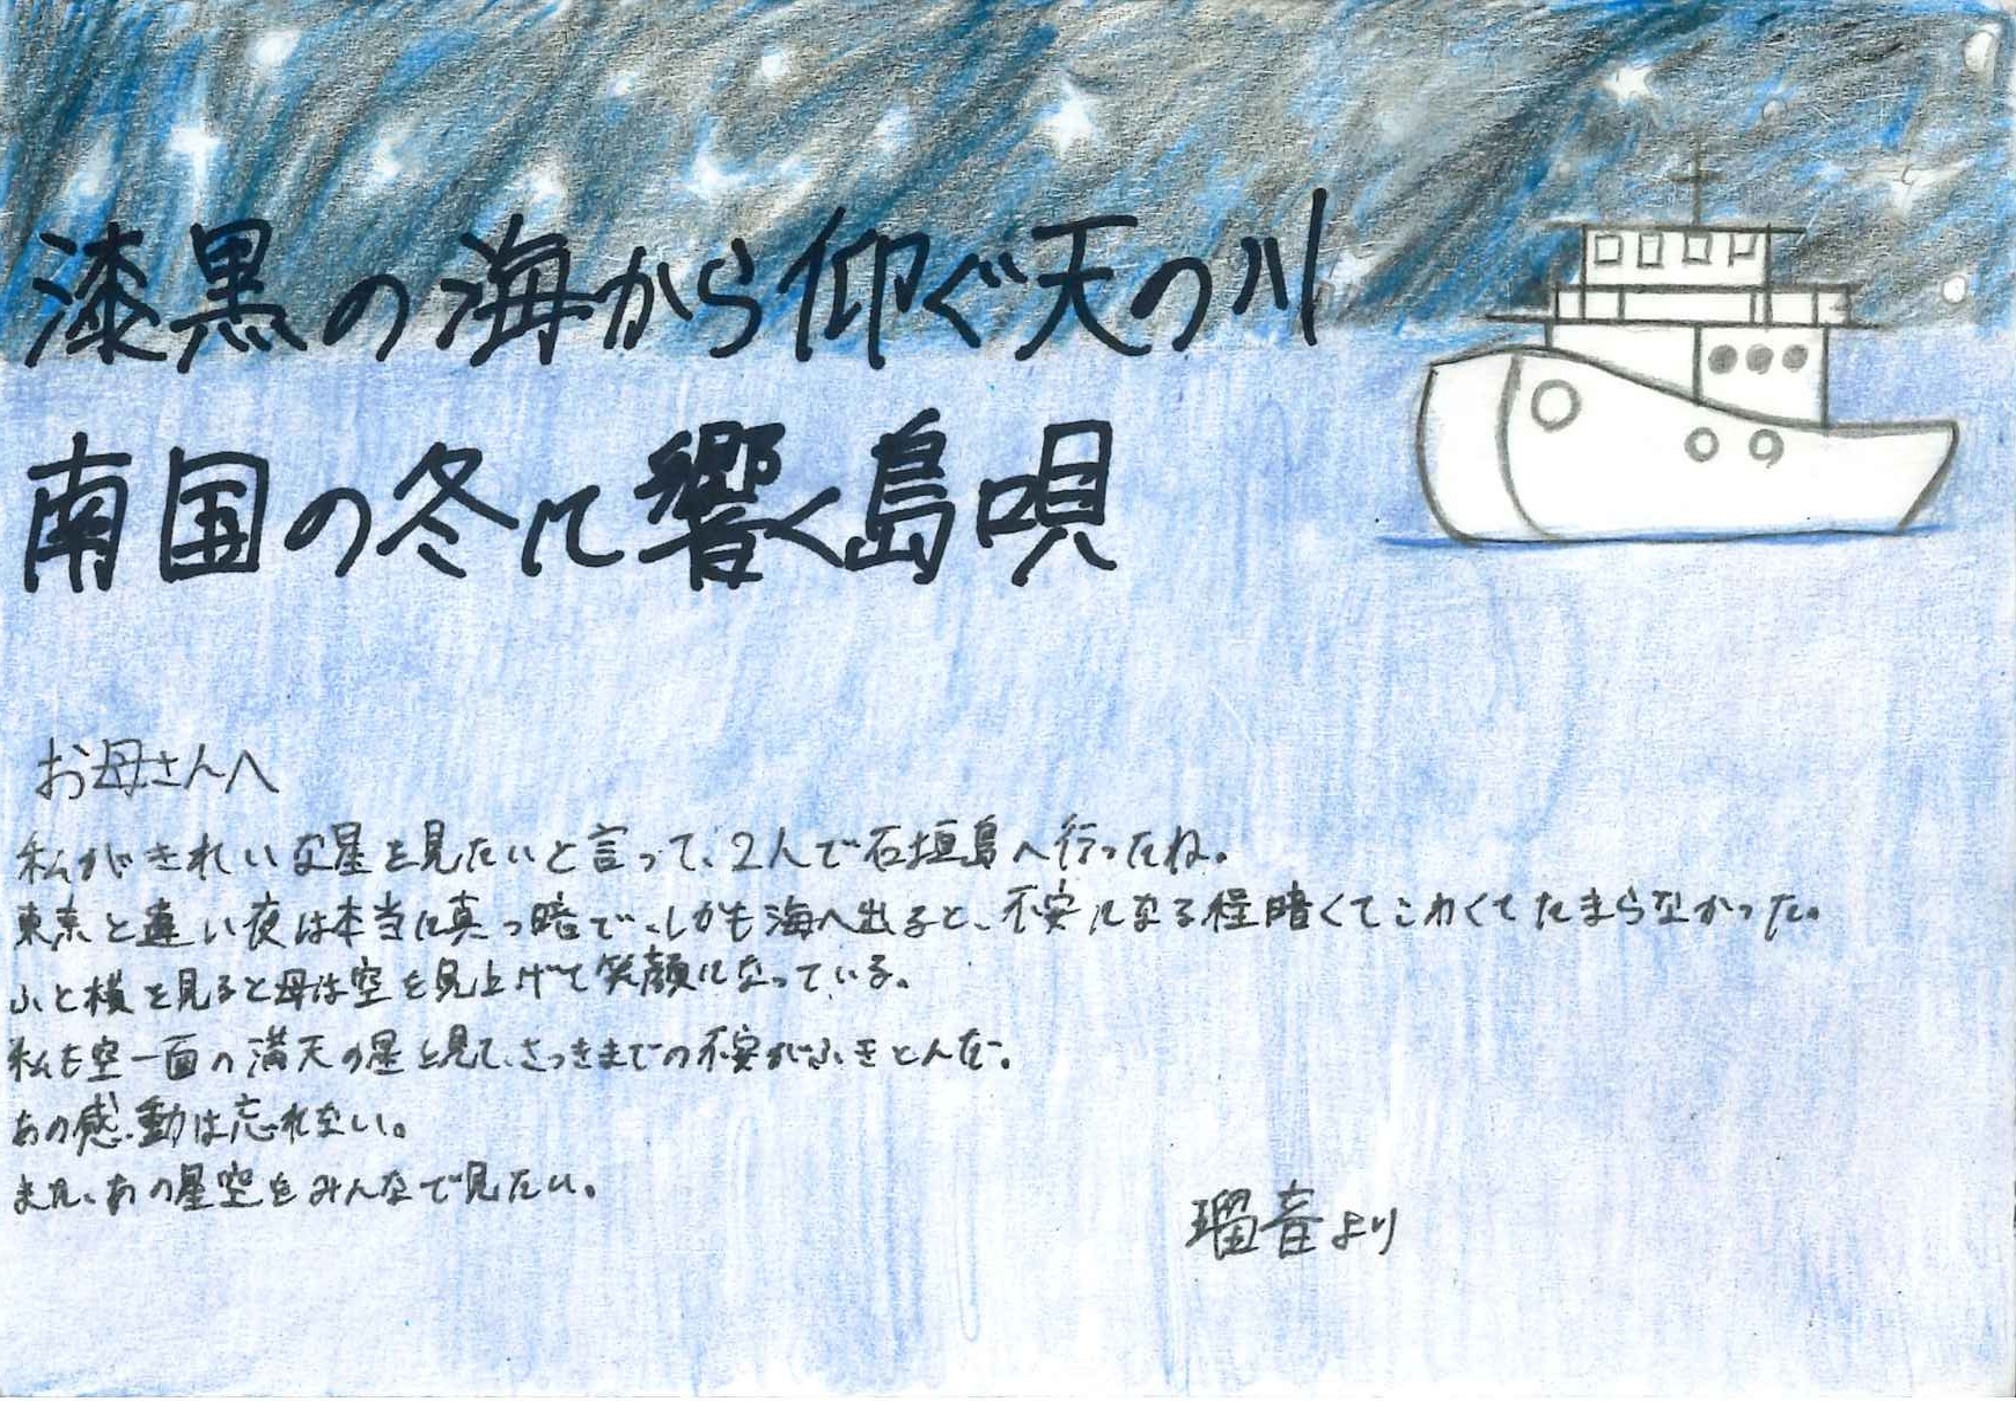 漆黒の海から仰ぐ天の川
南国の冬に響く島唄
お母さんへ
私がきれいな星を見たいと言って、2人で石垣島へ行ったね。
東京と違い夜は本当に真っ暗で、しかも海へ出ると、不安になる程暗くてこわくてたまらなかった。
ふと横を見ると母は空を見上げて笑顔になっている。
私も空一面の満天の星を見て、さっきまでの不安がふきとんだ。
あの感動は忘れない。
また、あの星空をみんなで見たい。
瑠音より